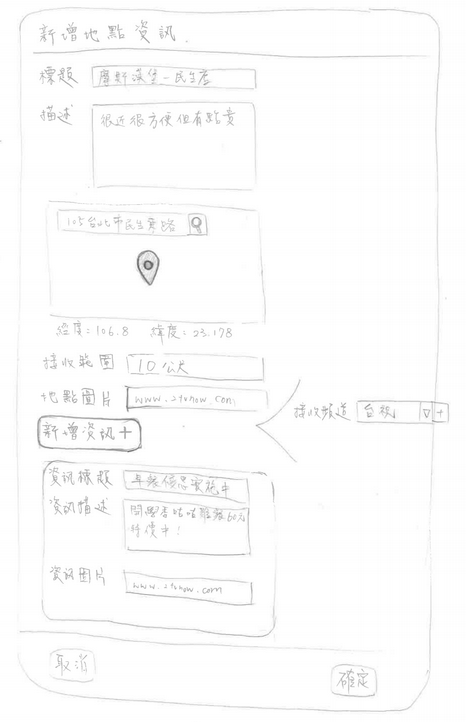 新增地點資訊.
標題 摩斯漢堡-民生店
描述 很近很方便但有點貴
105台北市民生東路
經度:106.8 緯度:23.178
接收範圍 10公尺
地點圖片 www.2tunow.com
接收頻道 台視
新增資訊+
資訊標題 早餐優惠實施中
資訊描述
60元
特價中!
資訊圖片 www.2tunow.com
取消
確定